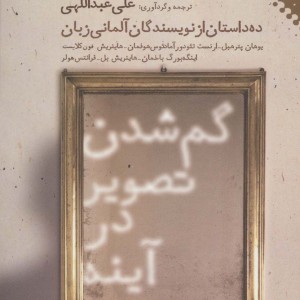 ترجمه و گردآوری: علی عبداللهی
ده داستان از نویسندگان آلمانی زبان
یوهان پترهبل_ارنست تئودور آمادئوس هوفمان_هاینریش فون کلایست
اینگه‌بورگ باخمان_هاینریش بل_فرانتس هولر
گم شدن
تصویر
در
آینه